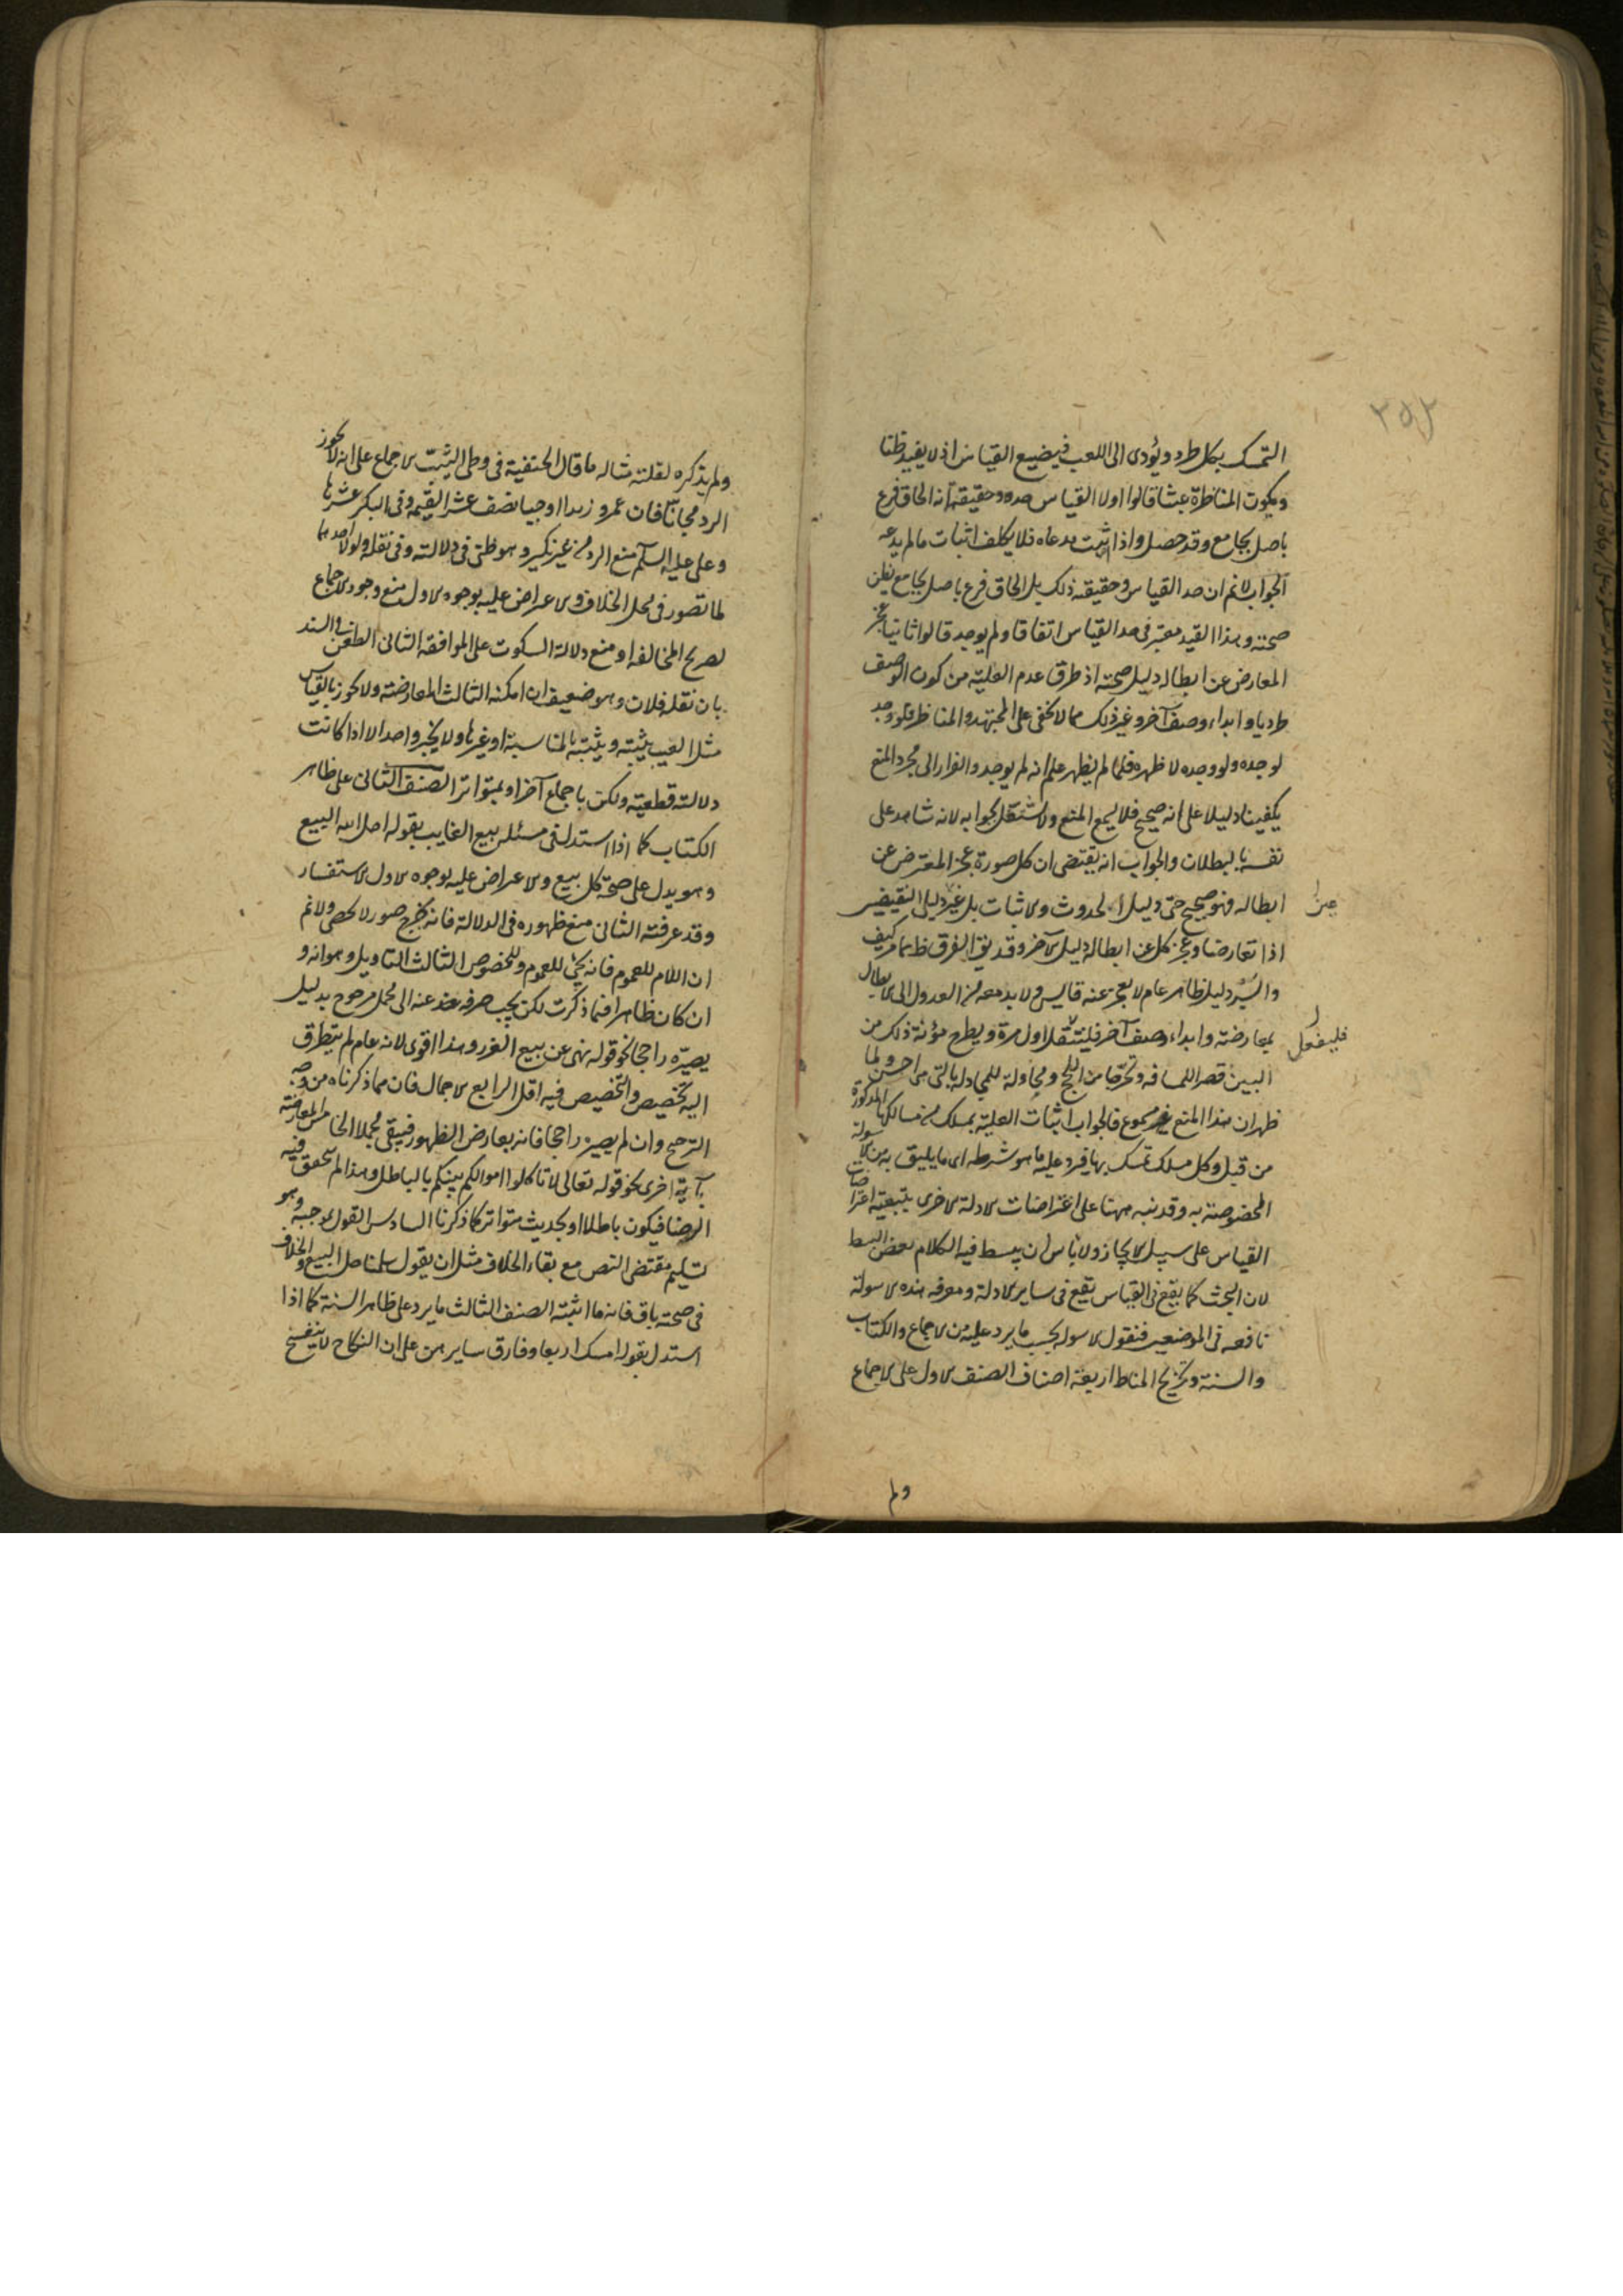 ٢٥٢
التمسك بكل طرد ويؤدى الى اللعب فيضيع القياس اذ لا يفيد ظنا
ويكون المناظرة عبثا قالوا اولا القياس حده وحقيقته انه الحاق فرع
باصل بجامع وقد حصل واذا ثبت مدعاه فلا يكلف اثبات ما لم يدعه
الجواب لانم ان حد القياس وحقيقته ذلك بل الحاق فرع باصل بجامع يظن
صحته وهذا القيد معتبر فى حد القياس اتفاقا ولم يوجد قالوا ثانيا عجز
المعارض عن ابطاله دليل صحته اذ طرق عدم العلية من كون الوصف
طرديا وابداء وصف آخر وغير ذلك مما لا يخفى على المجتهد والمناظر فلو وجد
لوجده ولو وجده لاظهره فلما لم يظهر علم انه لم يوجد والفرار الى مجرد المنع
يكفينا دليلا على انه صحيح فلا يسمع المنع ولا يشتغل بجوابه لانه شاهد على
نفسه بالبطلان والجواب انه يقتضى ان كل صورة عجز المعترض عن
ابطاله فهو صحيح حتى دليل الحدوث والاثبات بل غير دليل النقيضين
اذا تعارضا وعجز كل عن ابطال دليل الآخر وقد يق الفرق ظ مما مر كيف
والسبر دليل ظاهر عام لا يعجز عنه قايس ولا بد معه من العدول الى الابطال
بمعارضته وابداء وصف آخر فلينتقل اول مرة ويطرح مؤنة ذلك من
فليفعل
البين قصرا للمسافة وتحرزا من اللجج ومحاولة للمجادلة بالتى هى احسن ولما
ظهر ان هذا المنع مسموع فالجواب اثبات العلية بمسلك من مسالكها المذكورة
من قبل وكل مسلك تمسك بها فيرد عليه ما هو شرطه اى ما يليق به من الاسولة
المخصوصة به وقد نبه ههنا على اعتراضات الادلة الاخرى بتبعية اعتراضات
القياس على سبيل الايجاز ولا باس ان يبسط فيه الكلام بعض البسط
لان البحث كما يقع فى القياس يقع فى ساير الادلة ومعرفة هذه الاسولة
نافعة فى الموضعين فنقول الاسولة بحسب ما يرد عليه من الاجماع والكتاب
والسنة وتخريج المناط اربعة اصناف الصنف الاول على الاجماع
ولم
ولم يذكره لقلته مثاله ما قال الحنفية فى وطى الثيب الاجماع على انه لا يجوز
الرد مجانا فان عمر وزيدا اوجبا نصف عشر القيمة وفى البكر عشرها
وعلى عليه السلم منع الرد من غير نكير وهو ظنى فى دلالته وفى نقله ولولا احدهما
لما تصور فى محل الخلاف والاعتراض عليه بوجوه الاول منع وجود الاجماع
لصريح المخالفة او منع دلالة السكوت على الموافقة الثانى الطعن فى السند
بان نقله فلان وهو ضعيف ان امكنه الثالث المعارضة ولا يجوز بالقياس
مثل العيب يثبته ويثبته بالمناسبة او غيرها ولا بخبر واحد الا اذا كانت
دلالته قطعية ولكن باجماع آخر او بمتواتر الصنف الثانى على ظاهر
الكتاب كما اذا استدل فى مسئلة بيع الغايب بقوله احل الله البيع
وهو يدل على صحة كل بيع والاعتراض عليه بوجوه الاول الاستفسار
وقد عرفته الثانى منع ظهوره فى الدلالة فانه خرج صور لا تحصى ولانم
ان اللام للعموم فانه يجئ للعموم وللخصوص الثالث التاويل وهو انه و
ان كان ظاهرا فيما ذكرت لكن يجب صرفه عنه الى محمل مرجوح بدليل
يصيره راجحا نحو قوله نهى عن بيع الغرر وهذا اقوى لانه عام لم يتطرق
اليه تخصيص والتخصيص فيه اقل الرابع الاجمال فان مما ذكرناه من وجه
الترجيح وان لم يصيره راجحا فانه يعارض الظهور فيبقى مجملا الخامس المعارضة
بآية اخرى نحو قوله تعالى لا تاكلوا اموالكم بينكم بالباطل وهذا لم يتحقق فيه
الرضا فيكون باطلا او بحديث متواتر كما ذكرنا السادس القول بموجبه وهو
تسليم مقتضى النص مع بقاء الخلاف مثل ان يقول سلمنا حل البيع والخلاف
فى صحته باق فانه ما اثبته الصنف الثالث ما يرد على ظاهر السنة كما اذا
استدل بقوله امسك اربعا وفارق سايرهن على ان النكاح لا ينفسخ